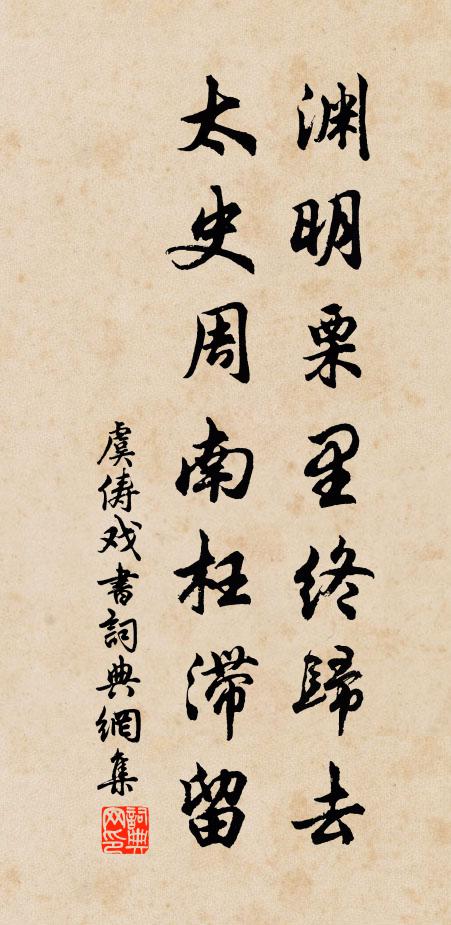 渊明栗里终歸去
太史周南枉滯留
虞俦戏書詞典網集
詞典网印